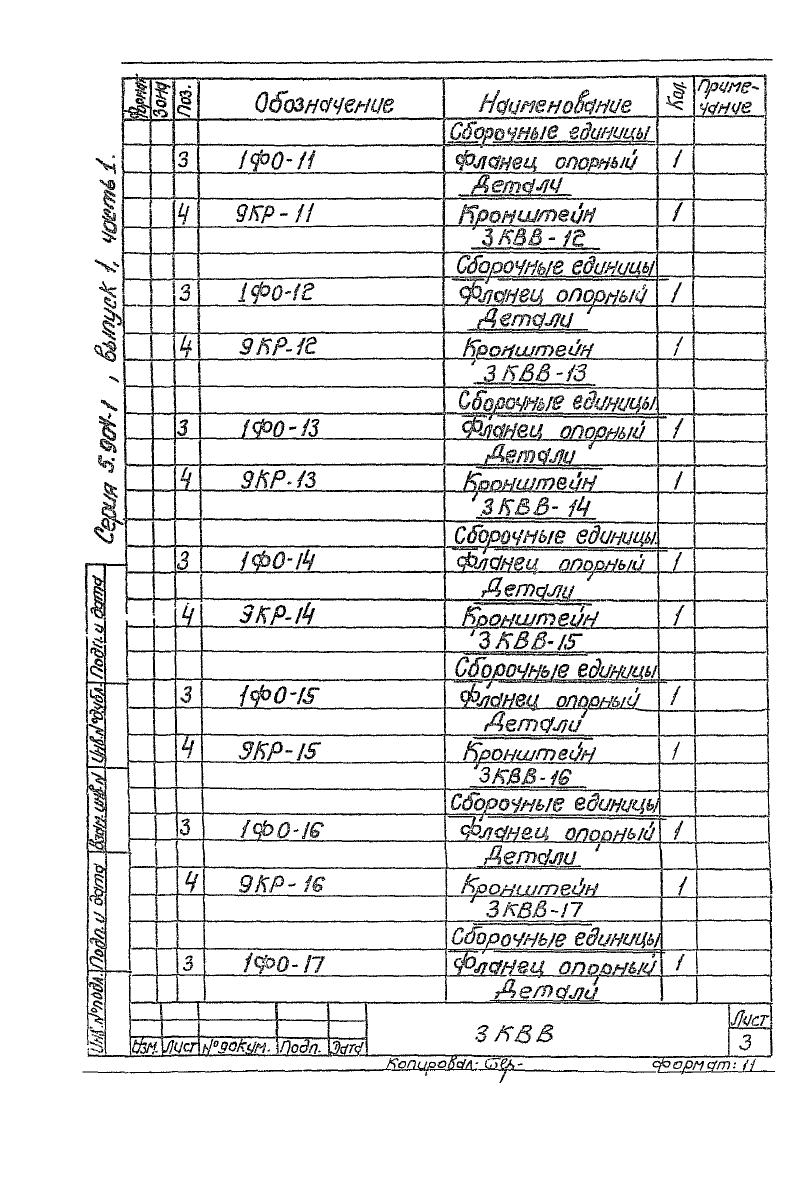 Формат Зона Поз. Обозначение Наименование Кол. Примечание
Сборочные единицы
3 1ФО-11 Фланец опорный 1
Детали
4 9КР-11 Кронштейн 1
3КВВ-12
Сборочные единицы
3 1ФО-12 Фланец опорный 1
Детали
4 9КР-12 Кронштейн 1
3КВВ-13
Сборочные единицы
3 1ФО-13 Фланец опорный 1
Детали
4 9КР-13 Кронштейн 1
3КВВ-14
Сборочные единицы
3 1ФО-14 Фланец опорный 1
Детали
4 9КР-14 Кронштейн 1
3КВВ-15
Сборочные единицы
3 1ФО-15 Фланец опорный 1
Детали
4 9КР-15 Кронштейн 1
3КВВ-16
Сборочные единицы
3 1ФО-16 Фланец опорный 1
Детали
4 9КР-16 Кронштейн 1
3КВВ-17
Сборочные единицы
3 1ФО-17 Фланец опорный 1
Детали
Серия 5.904-1, выпуск 1, часть 1.
Инв.№подл. Подп. и дата Взам.инв.№ Инв.№дубл. Подп. и дата
Изм. Лист №докум. Подп. Дата
3КВВ
Лист
3
Копировал:
Формат: 11